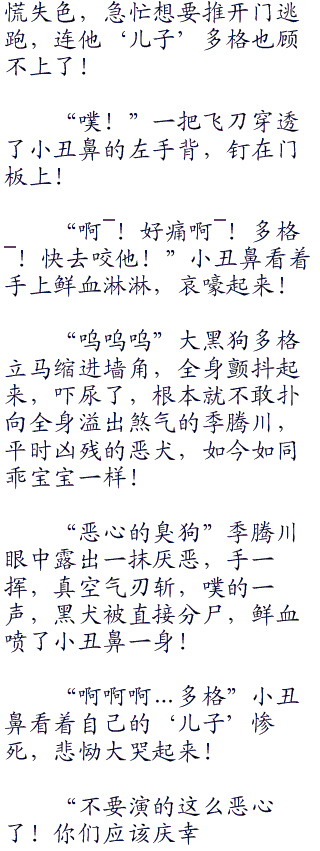 慌失色，急忙想要推开门逃
跑，连他‘儿子’多格也顾
不上了！
“噗！”一把飞刀穿透
了小丑鼻的左手背，钉在门
板上！
“啊¯！好痛啊¯！多格
¯！快去咬他！”小丑鼻看着
手上鲜血淋淋，哀嚎起来！
“呜呜呜”大黑狗多格
立马缩进墙角，全身颤抖起
来，吓尿了，根本就不敢扑
向全身溢出煞气的季腾川，
平时凶残的恶犬，如今如同
乖宝宝一样！
“恶心的臭狗”季腾川
眼中露出一抹厌恶，手一
挥，真空气刃斩，噗的一
声，黑犬被直接分尸，鲜血
喷了小丑鼻一身！
“啊啊啊…多格”小丑
鼻看着自己的‘儿子’惨
死，悲恸大哭起来！
“不要演的这么恶心
了！你们应该庆幸